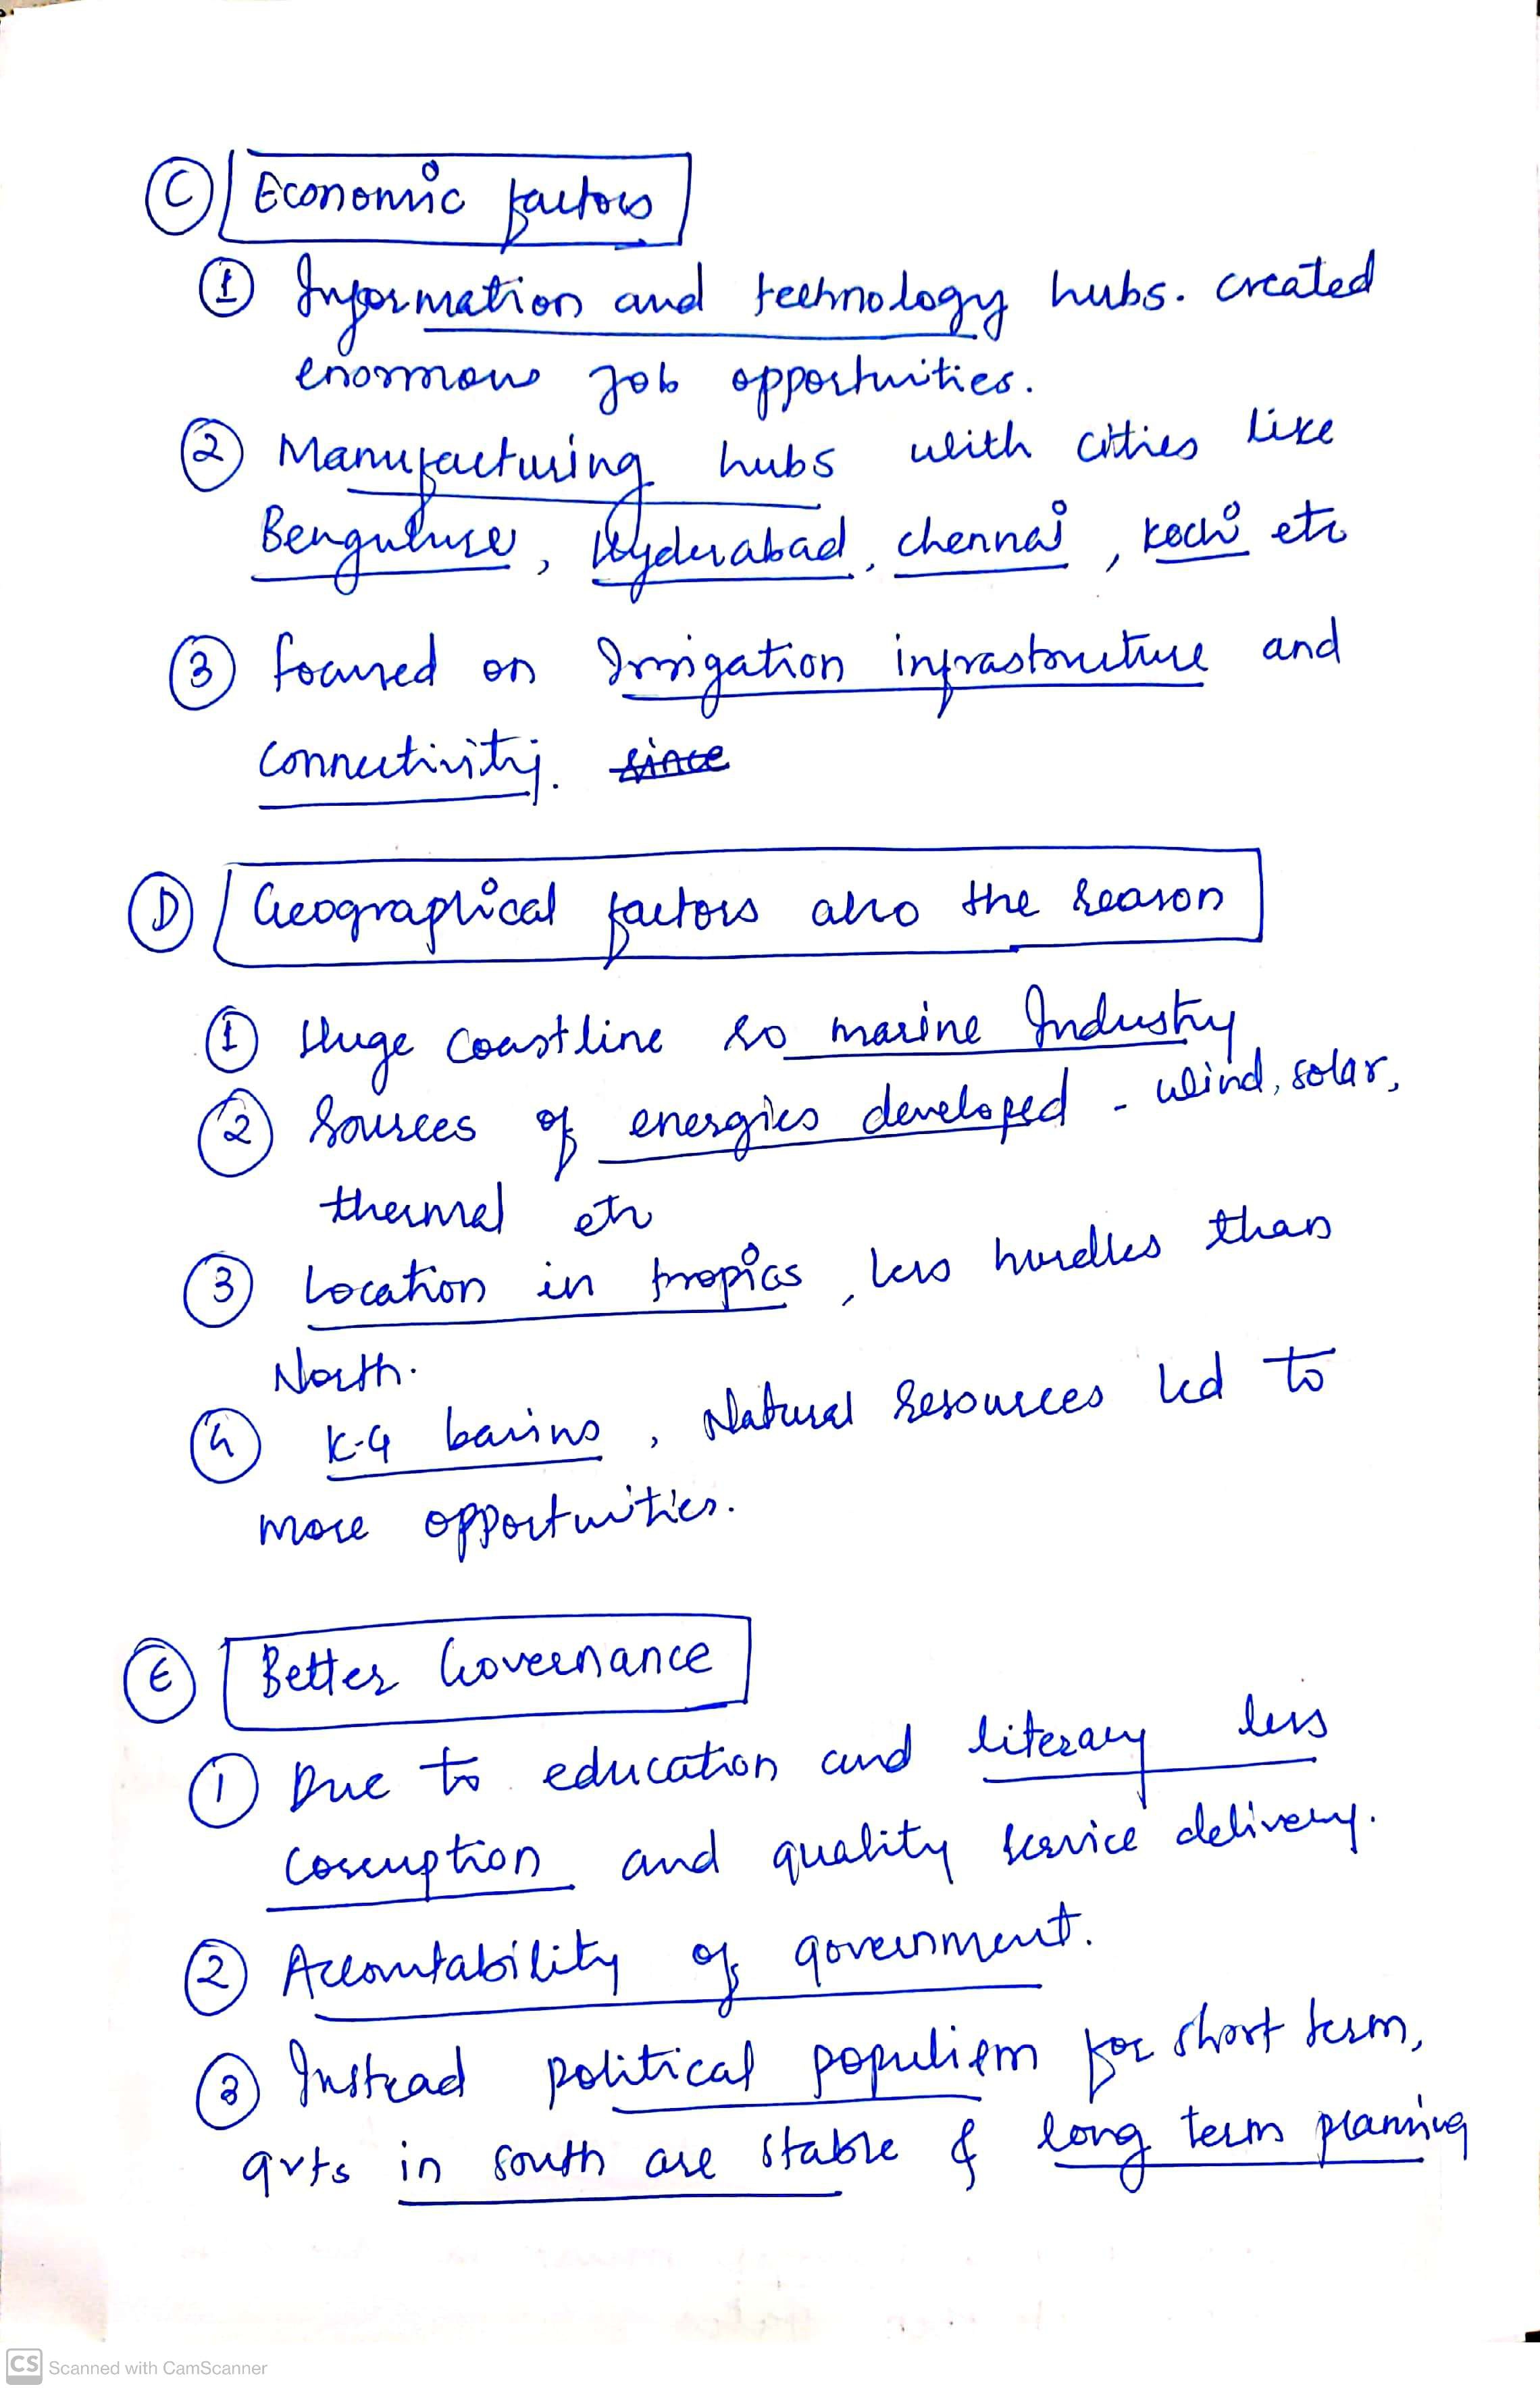 C Economic factors
1 Information and technology hubs. created
enormous job opportunities.
2 Manufacturing hubs with cities like
Benguluru, Hyderabad, chennai, kochi etc
3 focused on Irrigation infrastructure and
connectivity. since
D Geographical factors also the reason
1 Huge coastline so marine Industry
2 Sources of energies developed - wind, solar,
thermal etc
3 Location in tropics, less hurdles than
North.
4 K-G basins, Natural resources led to
more opportunities.
E Better Governance
1 Due to education and literacy less
corruption and quality service delivery.
2 Accountability of government.
3 Instead political populism for short term,
gvts in south are stable & long term planning
CS Scanned with CamScanner